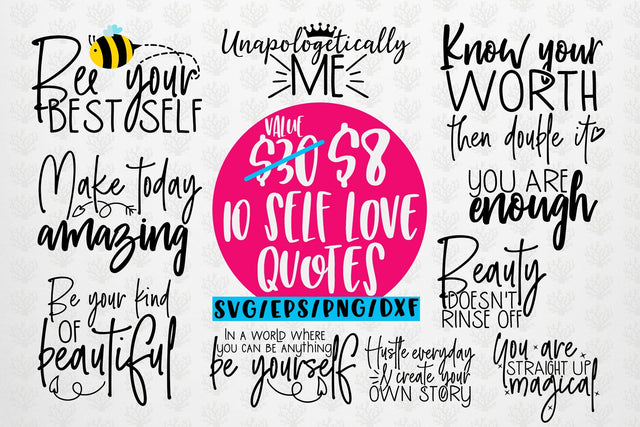 Bee your
BEST SELF
Unapologetically
ME
Know your
WORTH
then double it
VALUE
$30 $8
10 SELF LOVE
QUOTES
SVG/EPS/PNG/DXF
Make today
amazing
YOU ARE
enough
Be your kind
OF
beautiful
Beauty
DOESN'T
RINSE OFF
IN A WORLD WHERE
YOU CAN BE ANYTHING
be yourself
Hustle everyday
& create your
OWN STORY
You are
STRAIGHT UP
magical